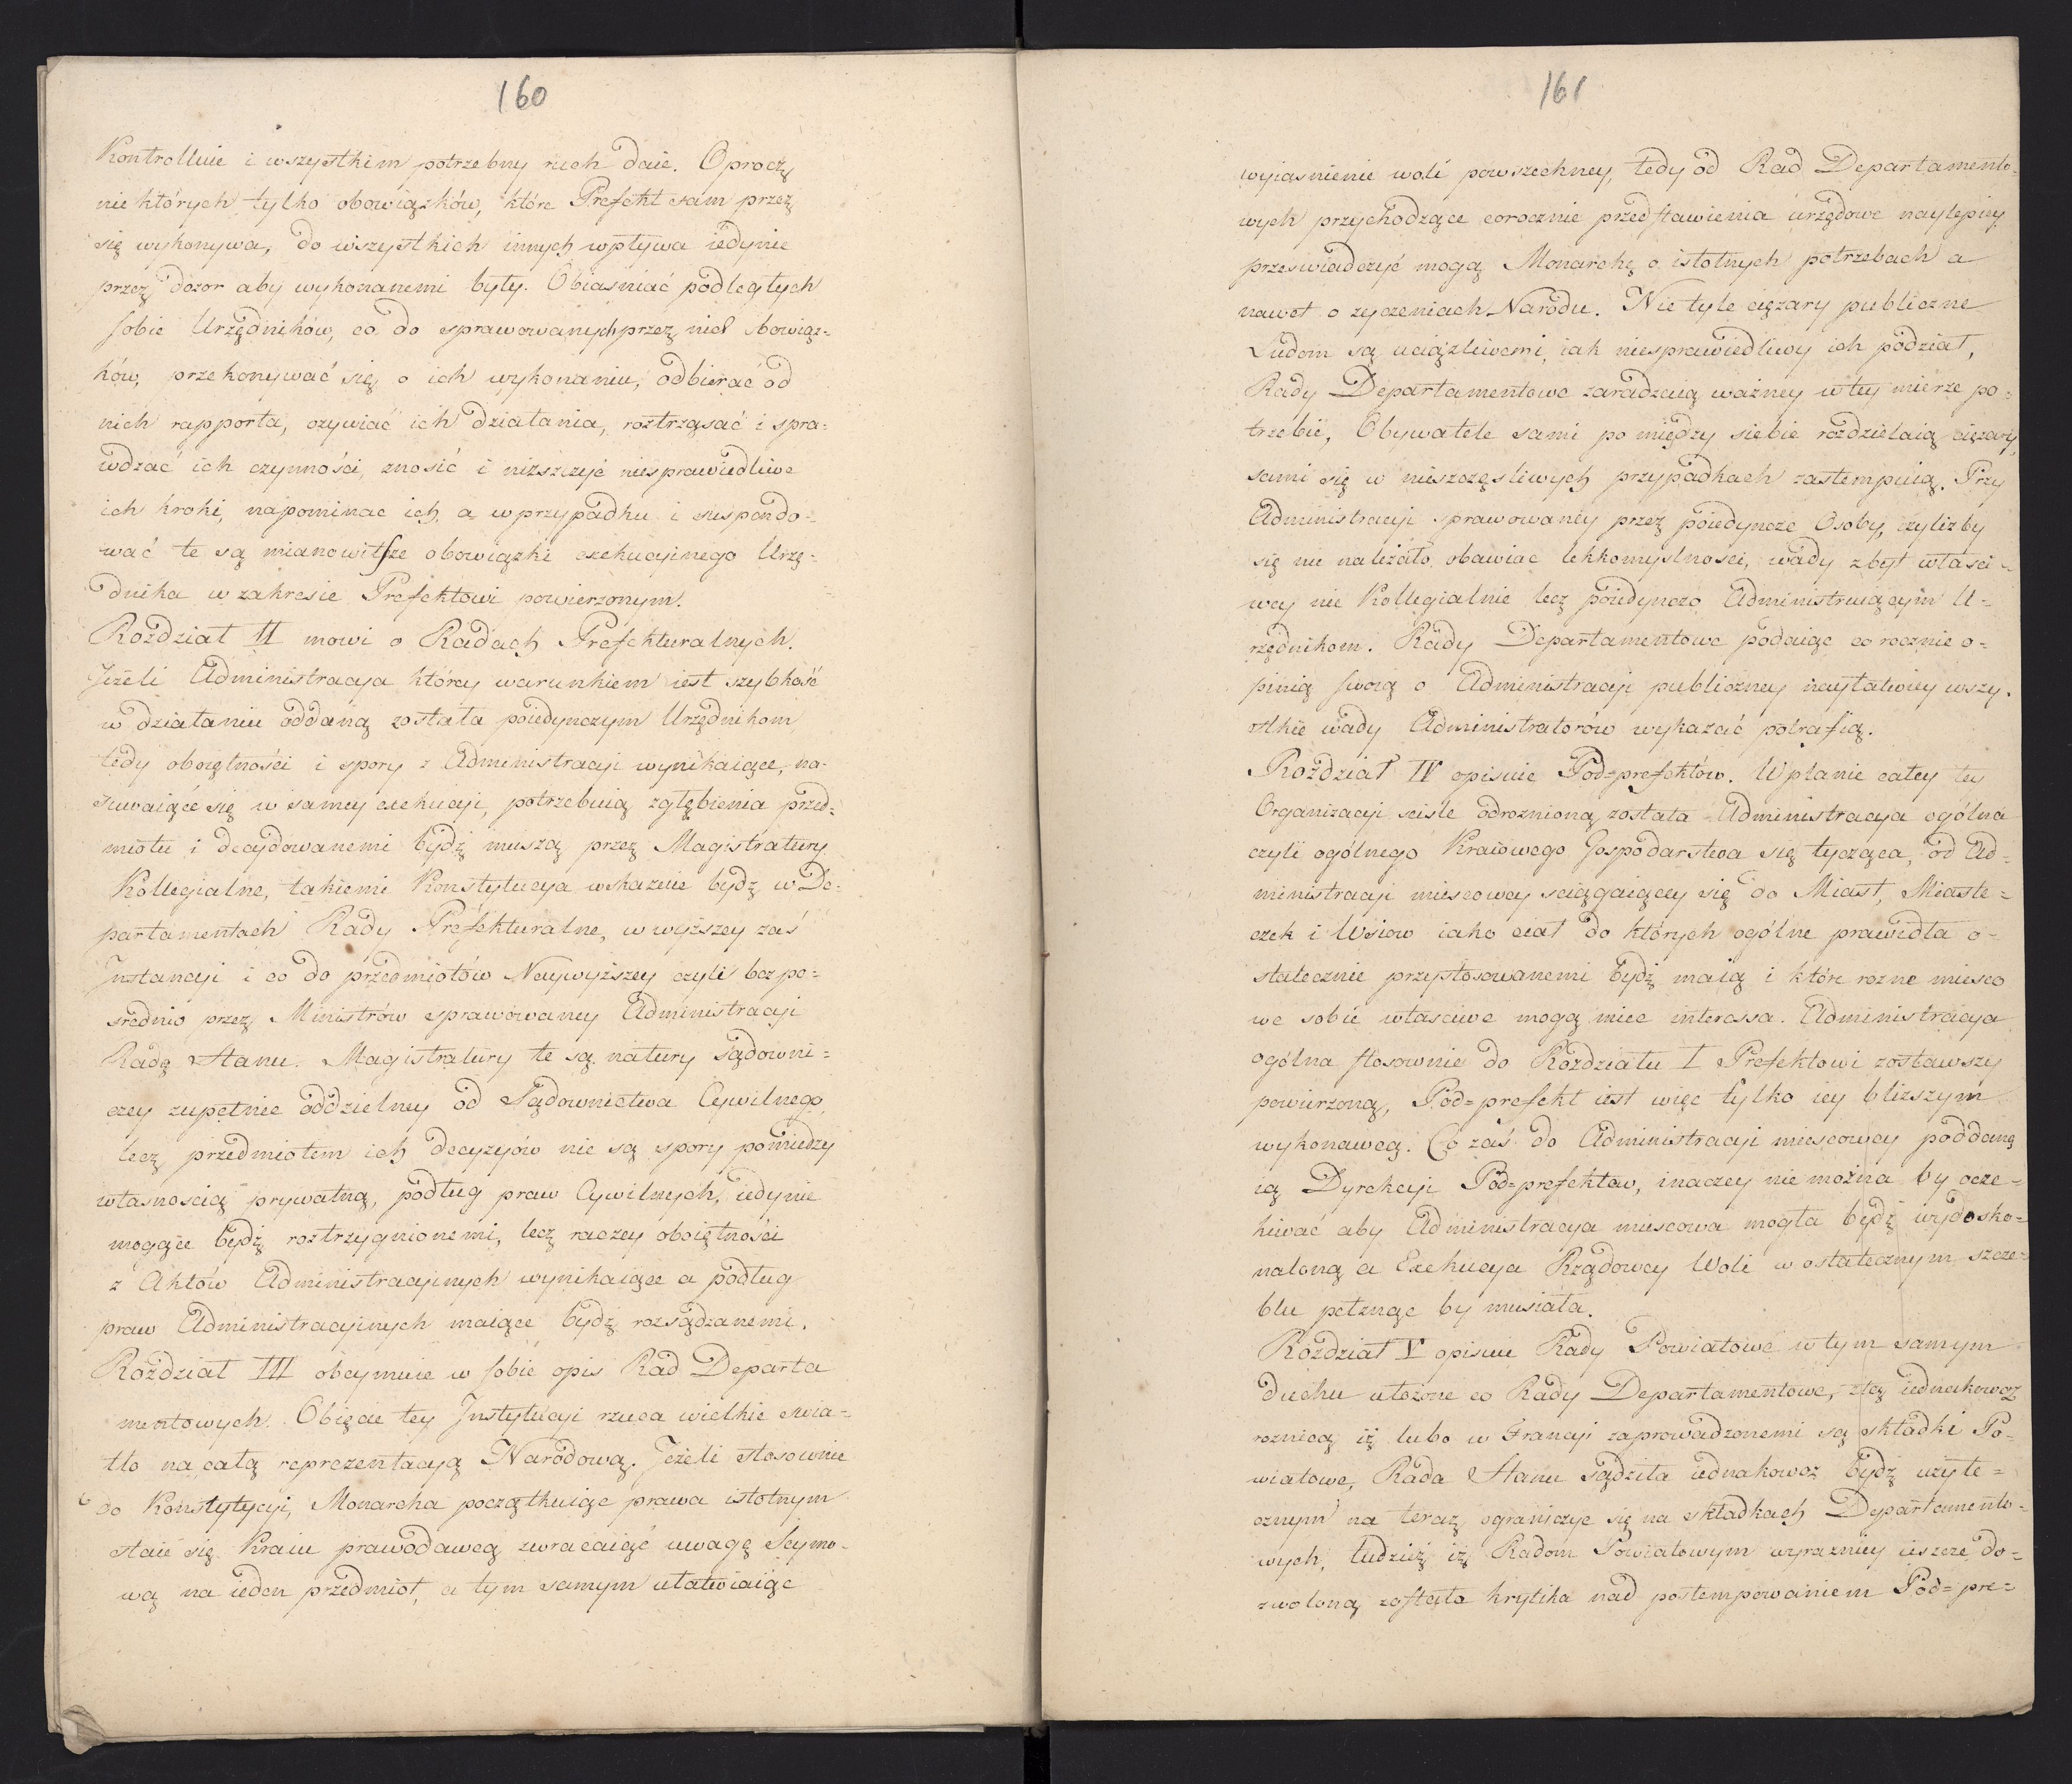 160
Kontrolluie i wszystkim potrzebny ruch daie. Oprocz
nie których tylko obowiązków, które Prefekt sam przez
się wykonywa, do wszystkich innych wpływa iedynie
przez dozor aby wykonanemi były. Obiasniać podległych
sobie Urzędników, co do sprawowanych przez nich obowiąz=
ków, przekonywać się o ich wykonaniu, odbierać od
nich rapporta, ozywiać ich działania, roztrząsać i spra=
wdzać ich czynności, znosić i niszczyć niesprawiedliwe
ich kroki, napominac ich, a w przypadku i suspendo=
wać te są mianowitsze obowiązki exekucyinego Urzę=
dnika w zakresie Prefektowi powierzonym.
Rozdział II mowi o Radach Prefekturalnych.
Jeżeli Administracya którey warunkiem iest szybkość
w działaniu oddaną została poiedynczym Urzędnikom
tedy oboiętności i spory z Administracyi wynikaiące, na=
suwaiące się w samey exekucyi, potrzebuią zgłębienia przed=
miotu i decydowanemi bydź muszą przez Magistratury
Kollegialne, takiemi Konstytucya wskazuie bydź w De=
partamentach Rady Prefekturalne, w wyższey zaś
Instancyi i co do przedmiotów Naywyższey czyli bezpo=
srednio przez Ministrów sprawowaney Administracyi
Radę Stanu. Magistratury te są natury sądowni=
czey zupełnie oddzielney od Sądownictwa Cywilnego,
lecz przedmiotem ich decyzyów nie są spory pomiedzy
własnoscią prywatną, podług praw Cywilnych, iedynie
mogące bydź roztrzygnionemi, lecz raczey oboiętności
z Aktów Administracyinych wynikaiące a podług
praw Administracyinych maiące bydź rozsądzanemi.
Rozdział III obeymuie w sobie opis Rad Departa
mentowych. Obięcie tey Instytucyi rzuca wielkie swia=
tło na całą reprezentacyą Narodową. Jeżeli stosownie
do Konstytycyi, Monarcha początkuiąc prawa istotnym
staie się Kraiu prawodawcą zwracaiąc uwagę Seymo=
wą na ieden przedmiot, a tym samym ułatwiaiąc
161
wyiasnienie woli powszechney, tedy od Rad Departamento=
wych przychodzące corocznie przedstawienia urzędowe naylepiey
przeswiadczyć mogą Monarchę o istotnych potrzebach a
nawet o zyczeniach Narodu. Nie tyle ciężary publiczne
Ludom są uciążliwemi, iak niesprawiedliwy ich podział,
Rady Departamentowe zaradzaią ważney w tey mierze po=
trzebie, Obywatele sami po między siebie rozdzielaią ciężary,
sami się w nieszczęsliwych przypadkach zastempuią. Przy
Administracyi sprawowaney przez poiedyncze Osoby, czyliżby
się nie należało obawiac lekkomyslnosci, wady zbyt własci=
wey nie Kollegialnie lecz poiedynczo Administruiącym U=
rzędnikom. Rady Departamentowe podaiąc co rocznie o=
pinią swoią o Administracyi publiczney nayłatwiey wszy=
stkie wady Administratorów wykazać potrafią.
Rozdział IV opisuie Pod=prefektów. W planie całey tey
Organizacyi scisle odroznioną została Administracya ogólna
czyli ogólnego Kraiowego Gospodarstwa się tycząca, od Ad=
ministracyi mieyscowey sciągaiącey się do Miast, Miaste=
czek i Wsiow iako ciał do których ogólne prawidła o=
statecznie przystosowanemi bydź maią i które rozne miesco
we sobie własciwe mogą miec interessa. Administracya
ogólna stosownie do Rozdziału I Prefektowi zostawszy
powierzoną, Pod=prefekt iest więc tylko iey bliższym
wykonawcą. Co zaś do Administracyi miescowey poddaną
ią Dyrekcyi Pod=prefektow, inaczey nie można by ocze=
kiwać aby Administracya miescowa mogła bydź wydosko=
naloną a Exekucya Rządowey Woli w ostatecznym szcze=
blu pełznąc by musiała.
Rozdział V opisuie Rady Powiatowe w tym samym
duchu ułożone co Rady Departamentowe, z tą iednakowoż
roznicą iż lubo w Francyi zaprowadzonemi są składki Po=
wiatowe, Rada Stanu sądziła iednakowoż bydź użyte=
cznym na teraz ograniczyc się na składkach Departamento=
wych, tudzież iż Radom Powiatowym wyrazniey ieszcze do=
zwoloną została krytika nad postempowaniem Pod=pre=